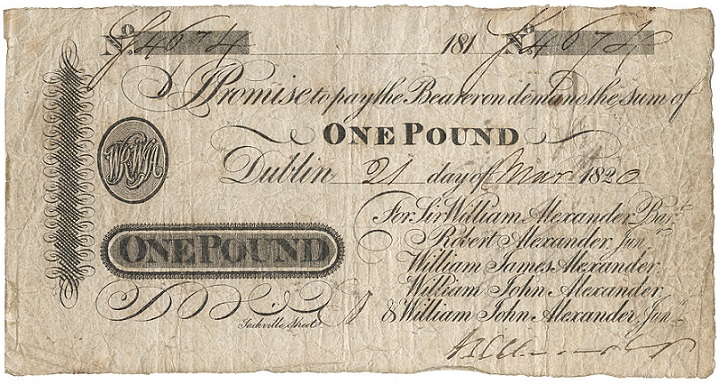 No. 4674 181 No. 4674
I Promise to pay the Bearer on demand the sum of
ONE POUND
Dublin 21 day of Mar 1820
For Sir William Alexander, Bart.
Robert Alexander, Junr.
William James Alexander
William John Alexander
& William John Alexander, Junr.
ONE POUND
Sackville Street